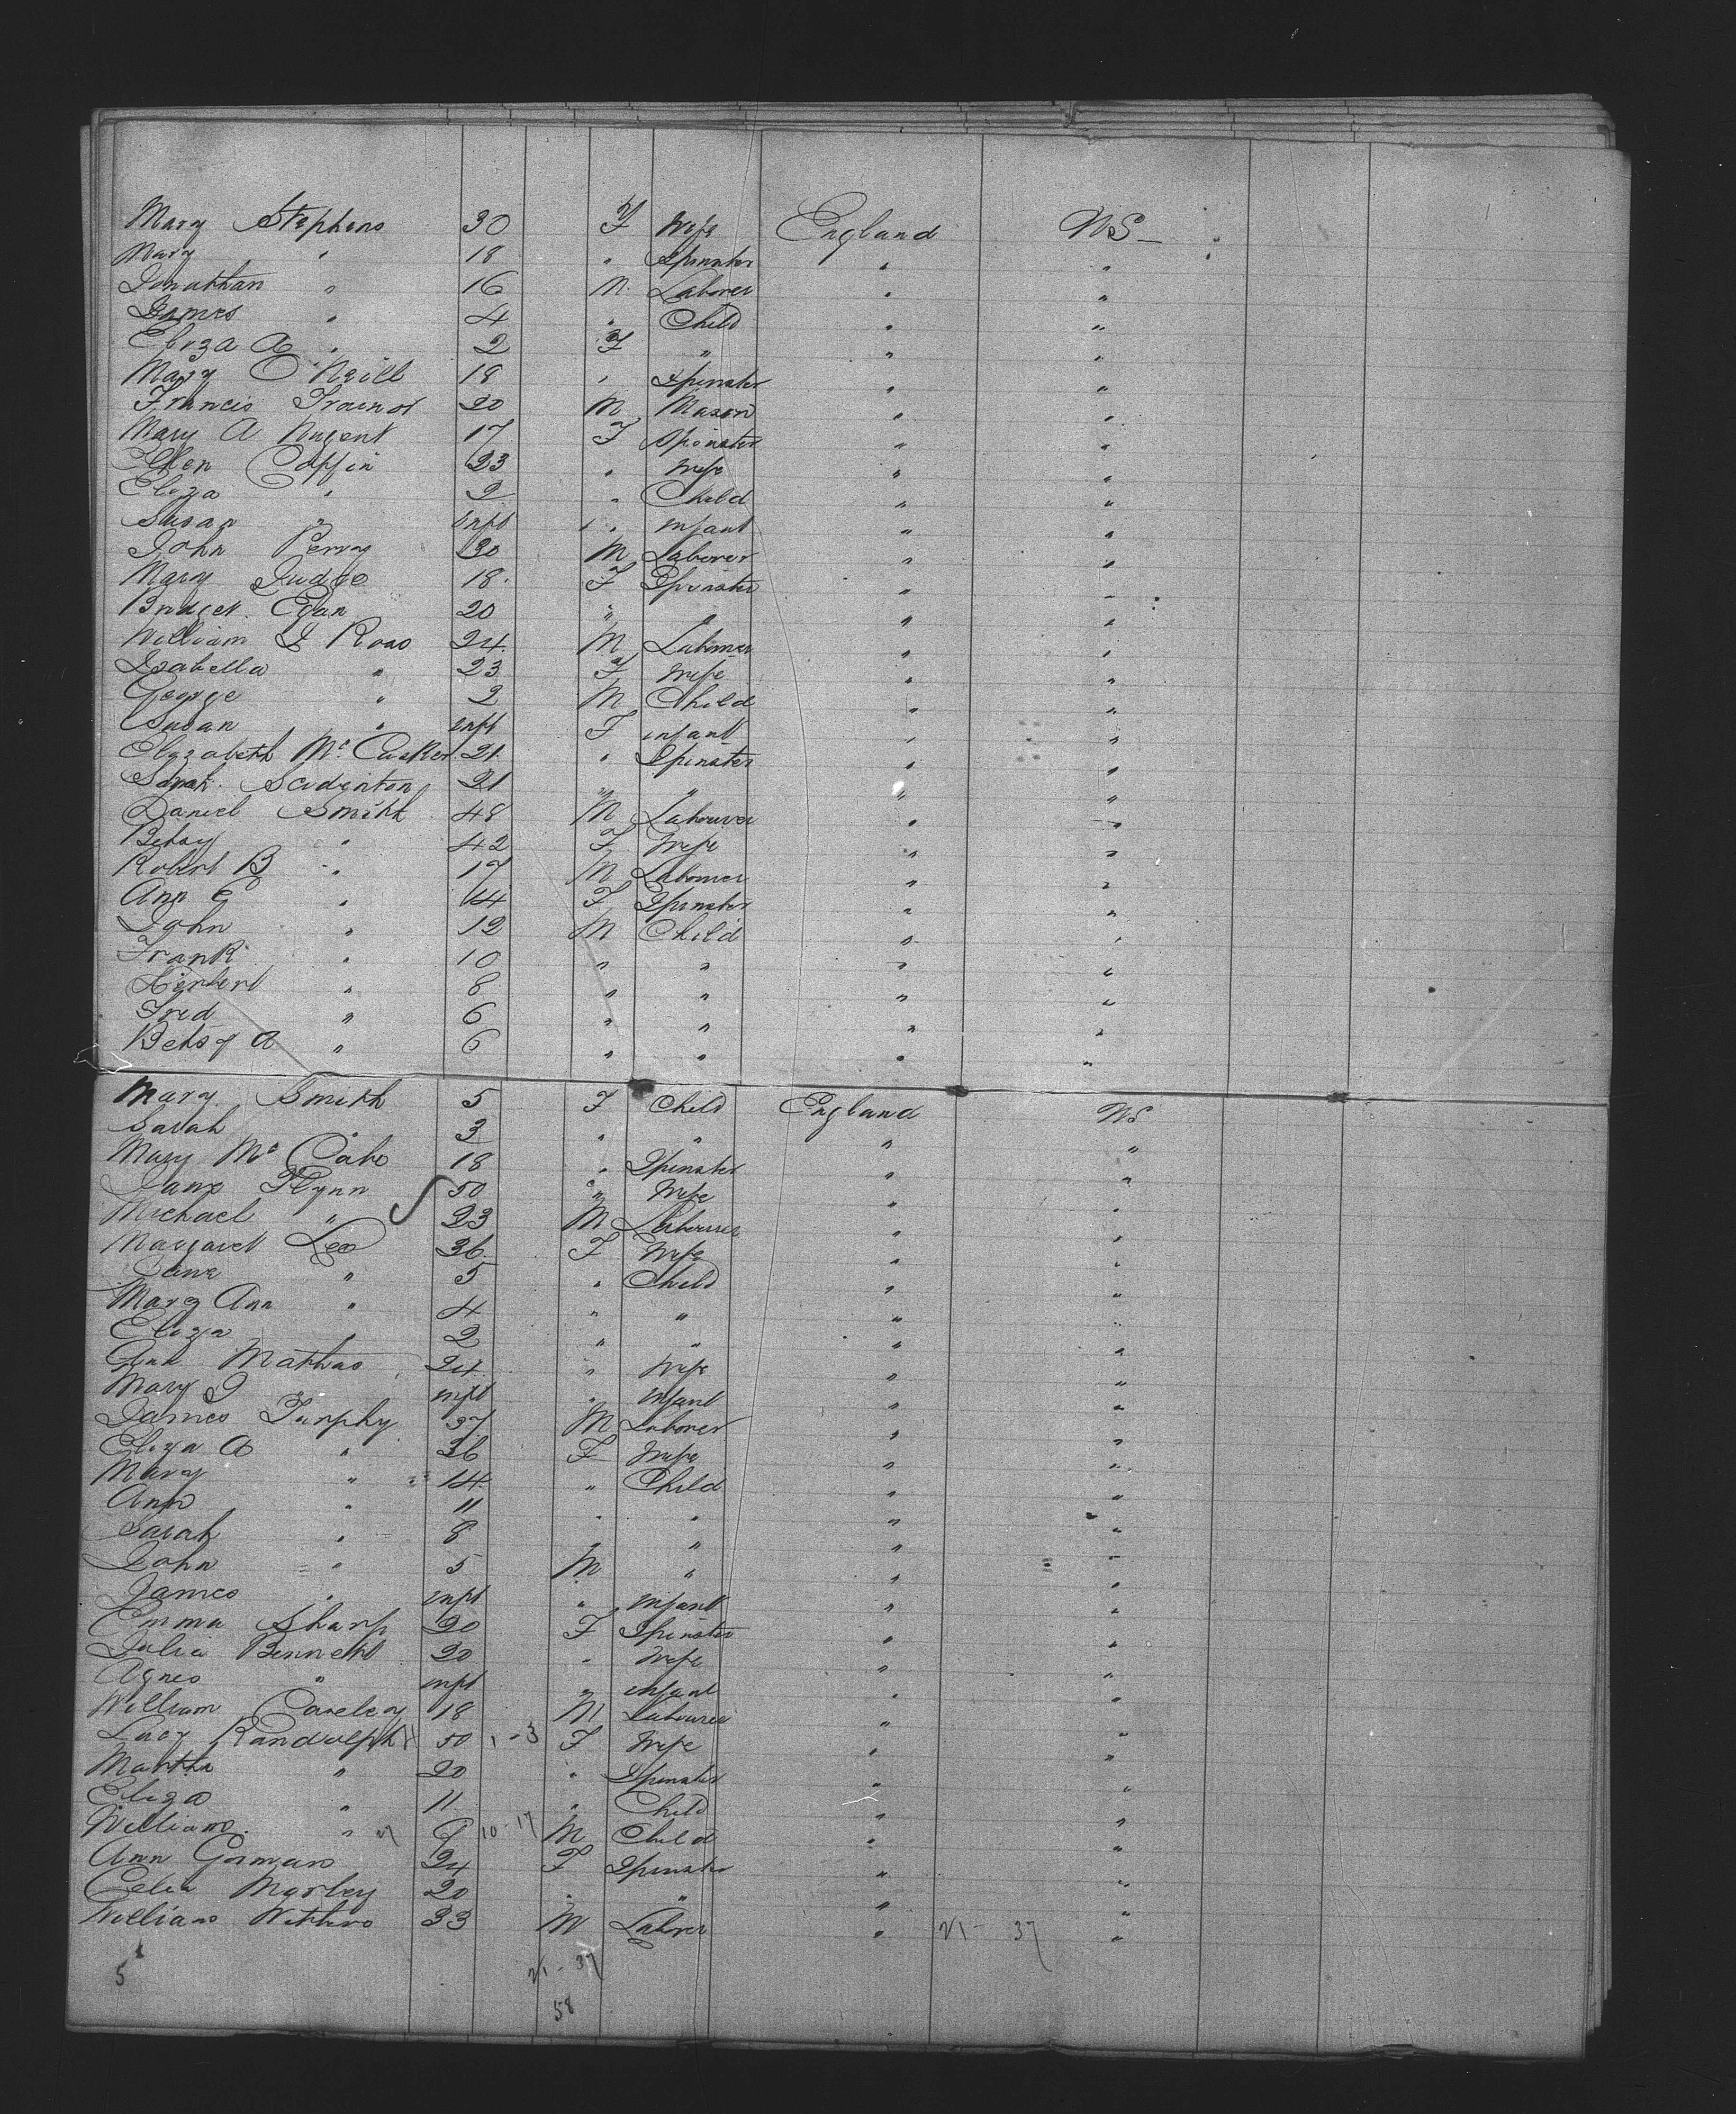 Mary Stephens 30 F Wife England US
Mary " 18 " Spinster " "
Jonathan " 16 M Laborer " "
James " 4 " Child " "
Eliza A " 2 F " " "
Mary O'Neill 18 " Spinster " "
Francis Trainor 20 M Mason " "
Mary A Nugent 17 F Spinster " "
Ellen Coffin 23 " Wife " "
Eliza " 2 " Child " "
Susan " inft " infant " "
John Perry 30 M Laborer " "
Mary Judge 18 F Spinster " "
Bridget Egan 20 " " " "
William J Ross 24 M Labourer " "
Isabella " 23 F Wife " "
George " 2 M Child " "
Susan " inft F infant " "
Elizabeth Mc Casker 21 " Spinster " "
Sarah 21 " " " "
Daniel Smith 48 M Labourer " "
Betsy " 42 F Wife " "
Robert B " 17 M Labourer " "
Ann E " 14 F Spinster " "
John " 12 M Child " "
Frank " 10 " " " "
Herbert " 8 " " " "
Fred " 6 " " " "
Betsy A " 6 " " " "
Mary Smith 5 F Child England US
Sarah " 3 " " " "
Mary Mc Cabe 18 " Spinster " "
Jane Flynn 50 " Wife " "
Michael " 23 M Labourer " "
Margaret Lee 36 F Wife " "
Jane " 5 " Child " "
Mary Ann " 4 " " " "
Eliza " 2 " " " "
Ann Mathas 24 " Wife " "
Mary J inft " infant " "
James Turphy 37 M Laborer " "
Eliza A " 36 F Wife " "
Mary " 14 " Child " "
Ann " 11 " " " "
Sarah " 8 " " " "
John " 5 M " " "
James " inft " infant " "
Emma Sharp 20 F Spinster " "
Julia Bennett 20 " Wife " "
Agnes " inft " infant " "
William 18 M Labourer " "
Lucy Randulph 50 1-3 F Wife " "
Martha " 20 " Spinster " "
Eliza " 11 " Child " "
William " 9 10-17 M Child " "
Ann Gorman 24 F Spinster " "
Celia Morley 20 " " " "
William Withers 33 M Laborer " 21-37 "
5 21-37
58